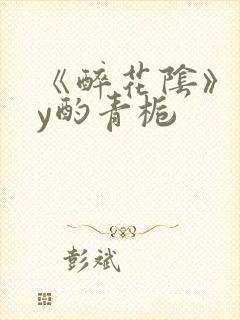 《醉花陰》
y酌青栀
彭斌